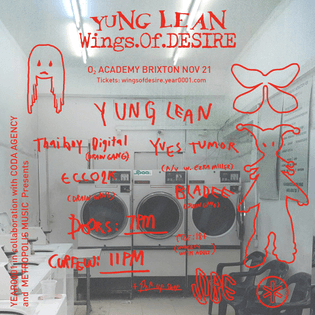 YUNG LEAN
Wings.Of.DESIRE
O2 ACADEMY BRIXTON NOV 21
Tickets: wingsofdesire.year0001.com
YUNG LEAN
Thaiboy Digital
(DRAIN GANG)
YVES TUMOR
ECCO2K
(DRAIN GANG)
BLADEE
DOORS: 7PM
CURFEW: 11PM
YEAR0001 in collaboration with CODA AGENCY
and METROPOLIS MUSIC Presents